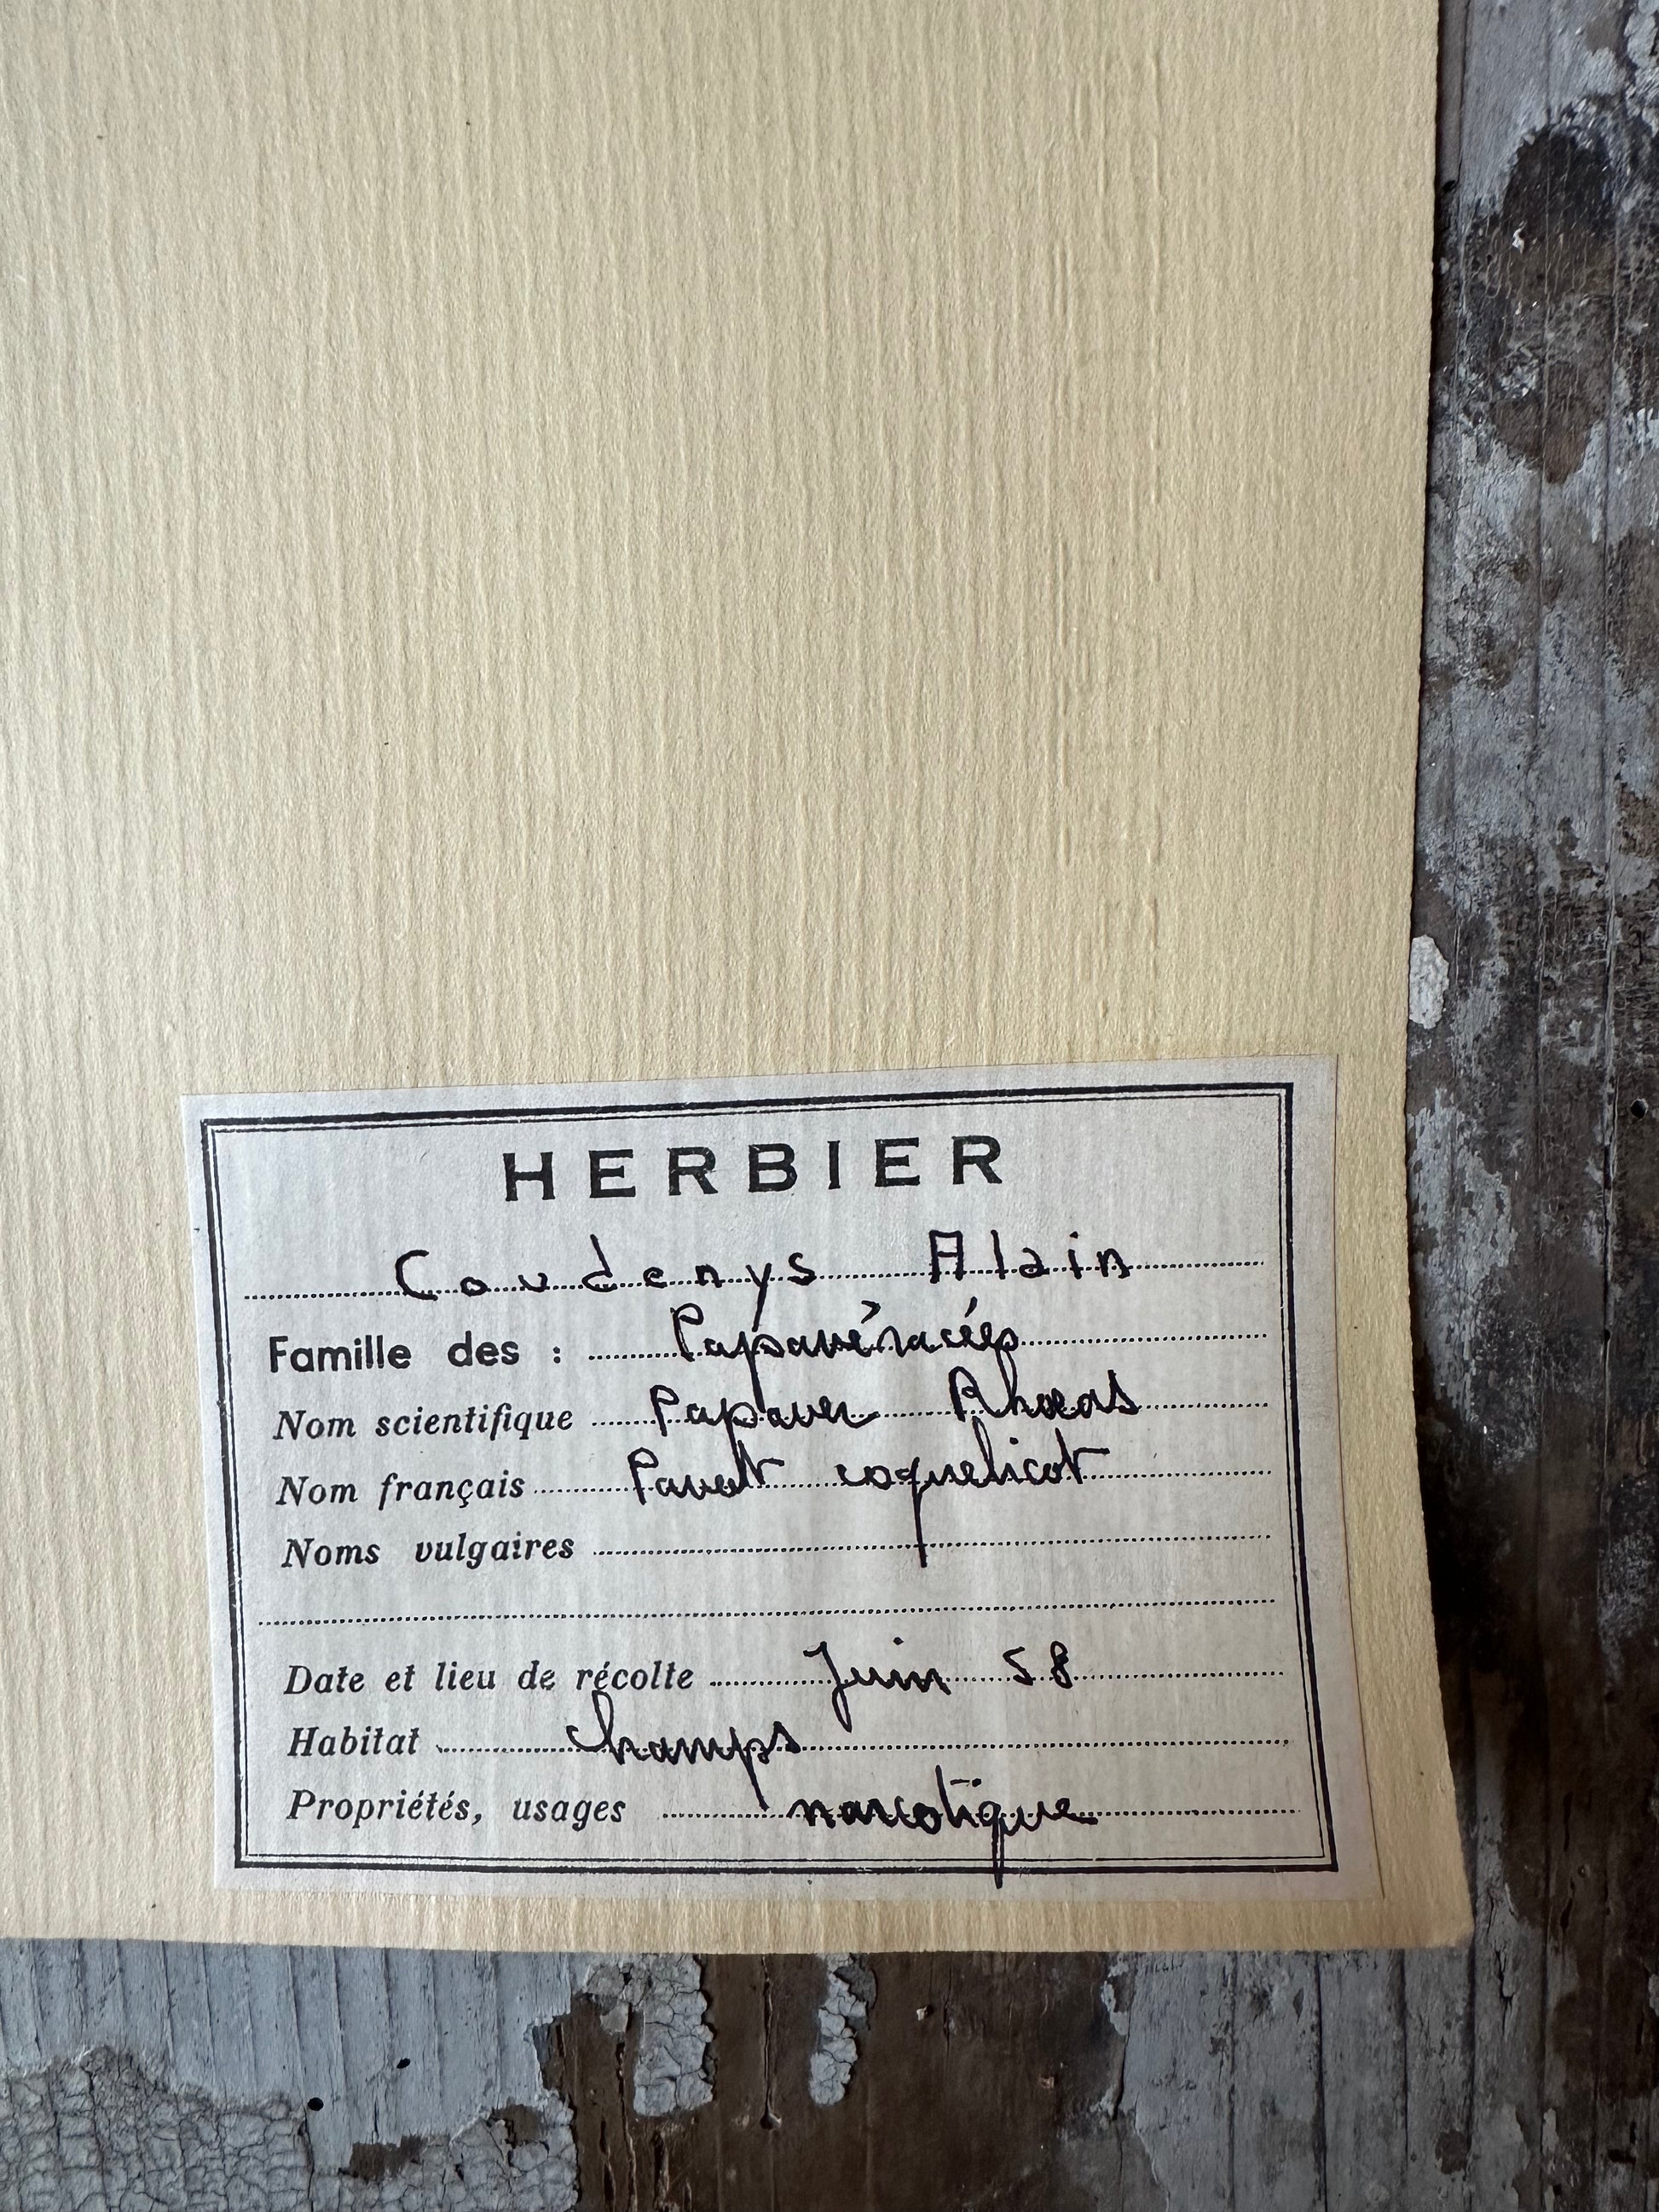 HERBIER
Coudenys Alain
Famille des : Papavéracées
Nom scientifique Papaver Rhoeas
Nom français Pavot coquelicot
Noms vulgaires
Date et lieu de récolte Juin 58
Habitat champs
Propriétés, usages narcotique